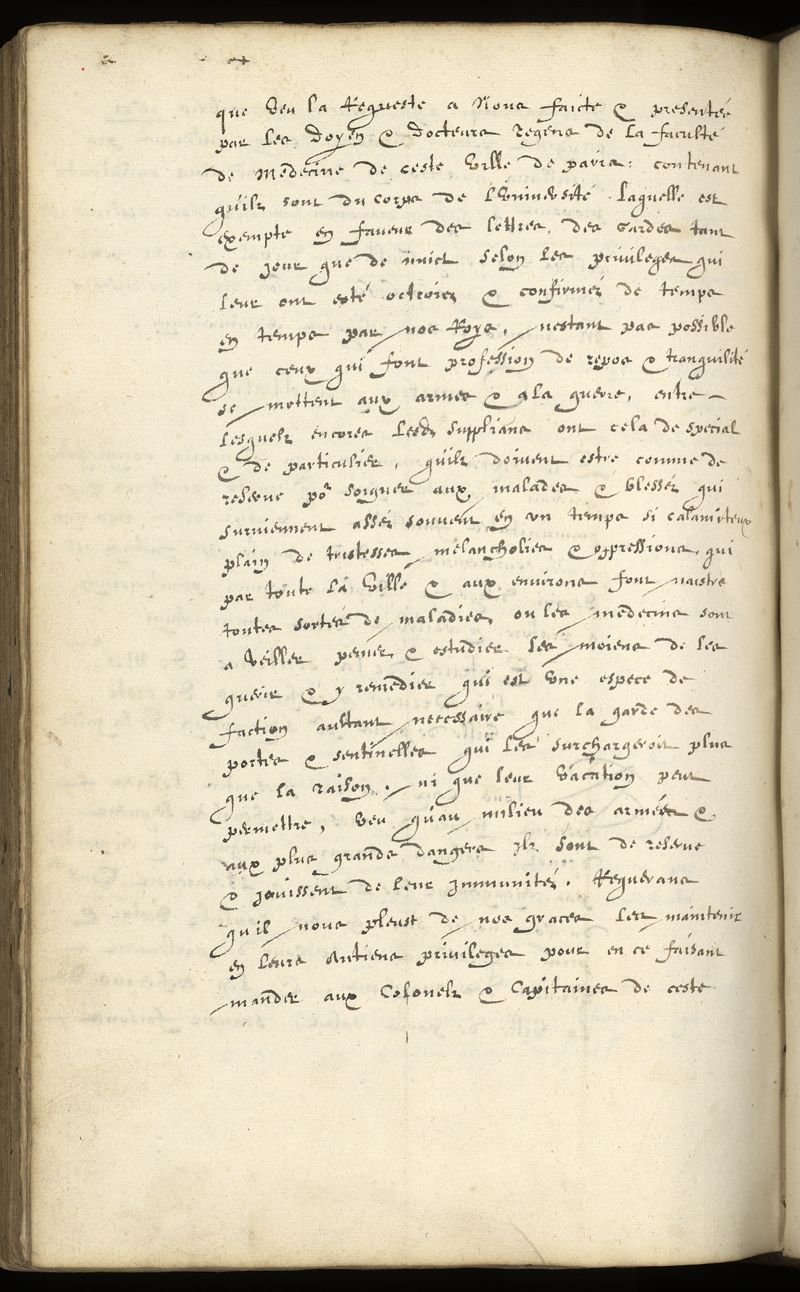 que veu la Requeste a Nous faicte & presentée
par les Doyen & Docteurs Regens de la faculté
de Medecine de ceste Ville de paris: contenant
quilz sont du corps de lUniversité laquelle est
exempte en faveur des lettres, des Gardes tant
de jour que de nuict selon les privileges qui
leur ont esté octroiez & confirmez de temps
en temps par nos Roys, nestant pas possible
que ceux qui font profession de repos & tranquilité
se mettent aux armes & a la guerre, entre
lesquelz encores lesdz suppliants ont cela de special
& de particulier, quilz doivent estre comme de
reserve po.r soigner aux malades & blessez qui
surviennent assez souvent en un temps si calamiteux
plain de tristesses melancholies & oppressions, qui
par toute la Ville & aux environs font naistre
toutes sortes de maladies, ou les medecins sont
a veiller pener & estudier les moiens de les
querir & y remedier qui est une espece de
faction aultant necessaire que la garde des
portes & sentinelles qui les surchargeroit plus
que la raison, ni que leur vacation peut
permettre, veu quau milieu des armées &
aux plus grands dangers jlz sont de reserve
& jouissent de leur jmmunitez. Requerans
quil nous pleust de nos graces les maintenir
en leurs Antiens privileges pour en ce faisant
mander aux Colonelz & Capitaines de ceste